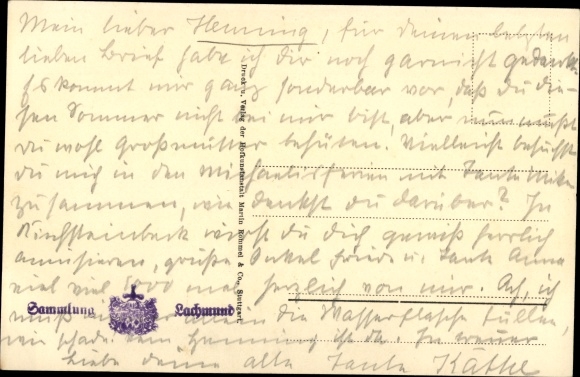 Mein lieber Henning, für deinen letzten
lieben Brief habe ich dir noch garnicht gedankt.
Es kommt mir ganz sonderbar vor, daß du die-
sen Sommer nicht bei mir bist, aber nun mußt
du wohl Großmutter behüten. Vielleicht besuchst
du mich in den Michaelisferien mit Tante
zusammen, wie denkst du darüber? In
wirst du dich gewiß herrlich
amüsieren, grüße Onkel Friedr. u. Tante Anna
viel viel 1000 mal herzlich von mir. Ach, ich
muß allein die Wasserflasche füllen,
wie schade kein Henning ist da. In treuer
Liebe deine alte Tante Käthe
Druck u. Verlag der Hofkunstanstalt Martin Rommel & Co., Stuttgart.
Sammlung Lachmund